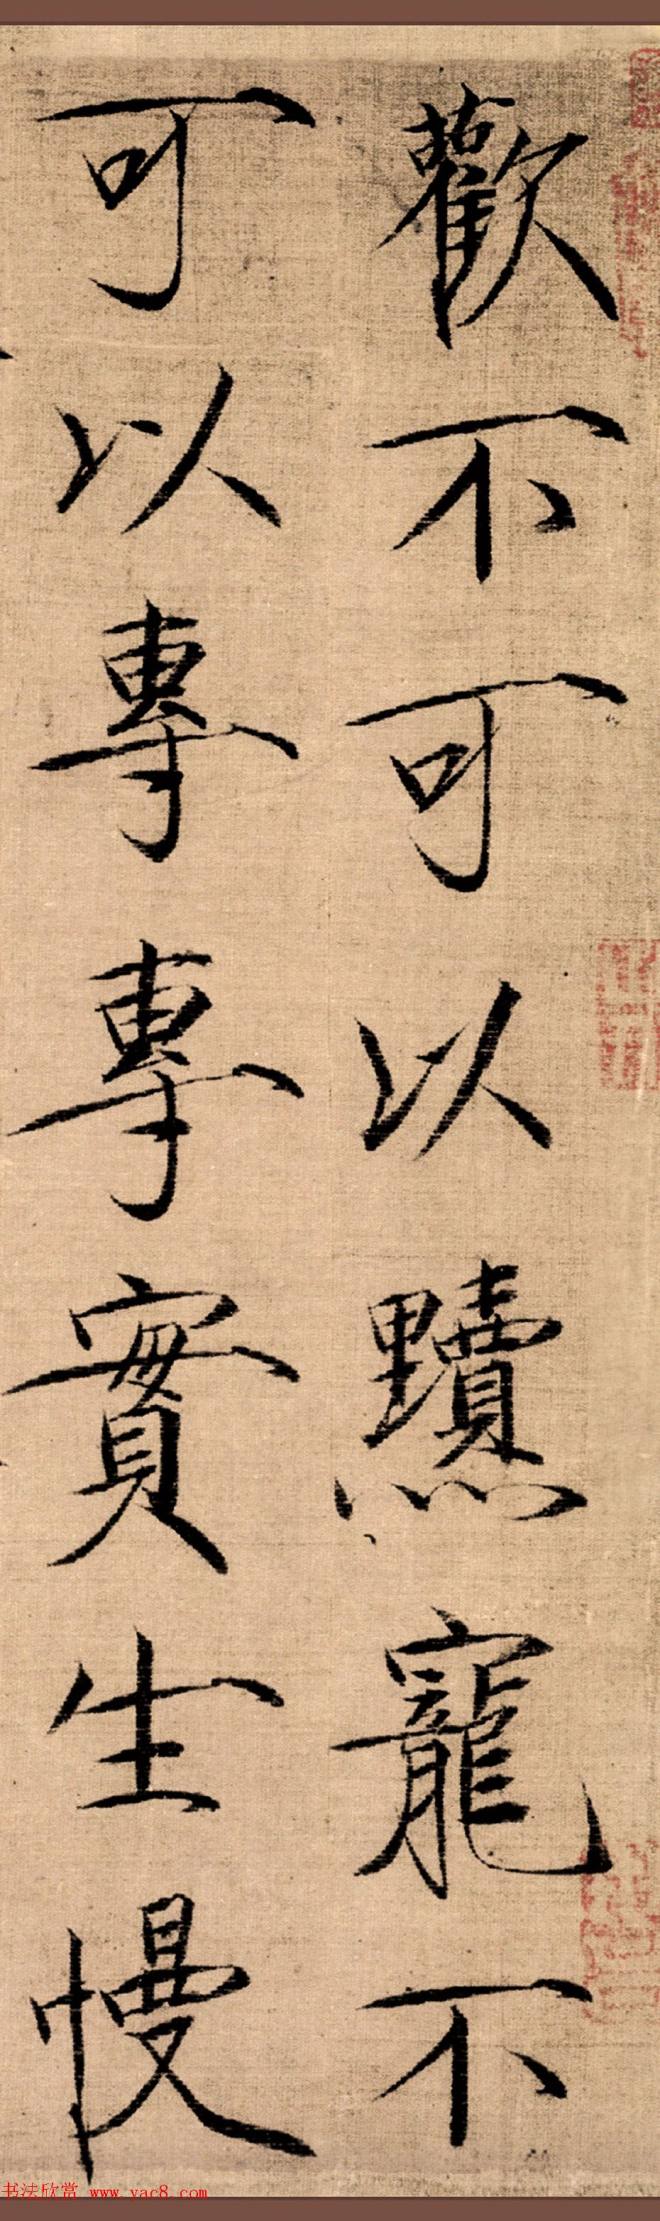 歡不可以黷寵不
可以專專實生慢
书法欣赏 www.yac8.com